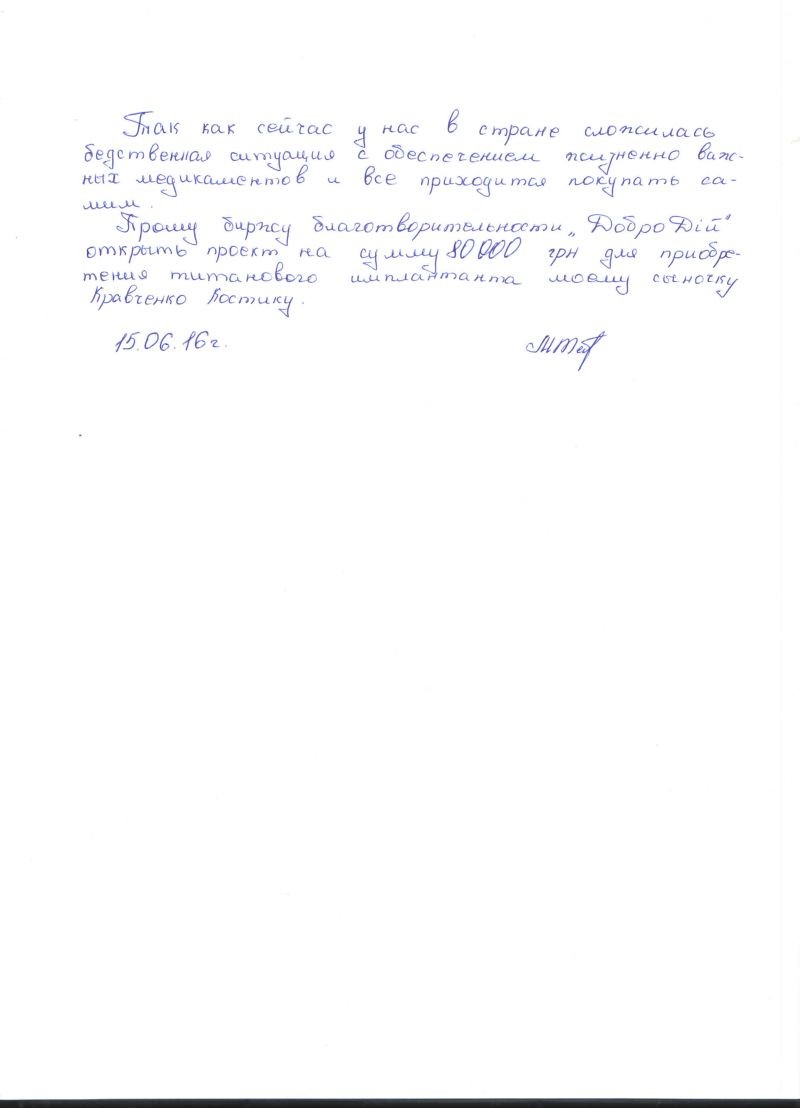 Так как сейчас у нас в стране сложилась
бедственная ситуация с обеспечением жизненно важ-
ных медикаментов и все приходится покупать са-
мим.
Прошу биржу благотворительности „ДоброДій"
открыть проект на сумму 80000 грн для приобре-
тения титанового имплантанта моему сыночку
Кравченко Костику.
15.06.16г.